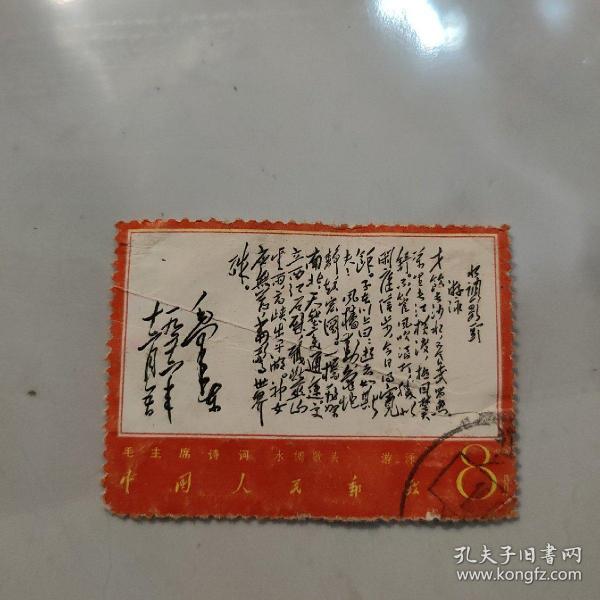 水调歌头
游泳
才饮长沙水 又食武昌鱼
万里长江横渡 极目楚
天舒 不管风吹浪打 胜似
闲庭信步 今日得宽
余 子在川上曰 逝者如斯
夫 风樯动 龟蛇
静 起宏图 一桥飞架
南北 天堑变通途 更
立西江石壁 截断巫山
云雨 高峡出平湖 神女
应无恙 当惊世界
殊
毛泽东
一九五六年
十二月五日
毛主席诗词 水调歌头 游泳
中国人民邮政 8分
孔夫子旧书网
www.kongfz.com